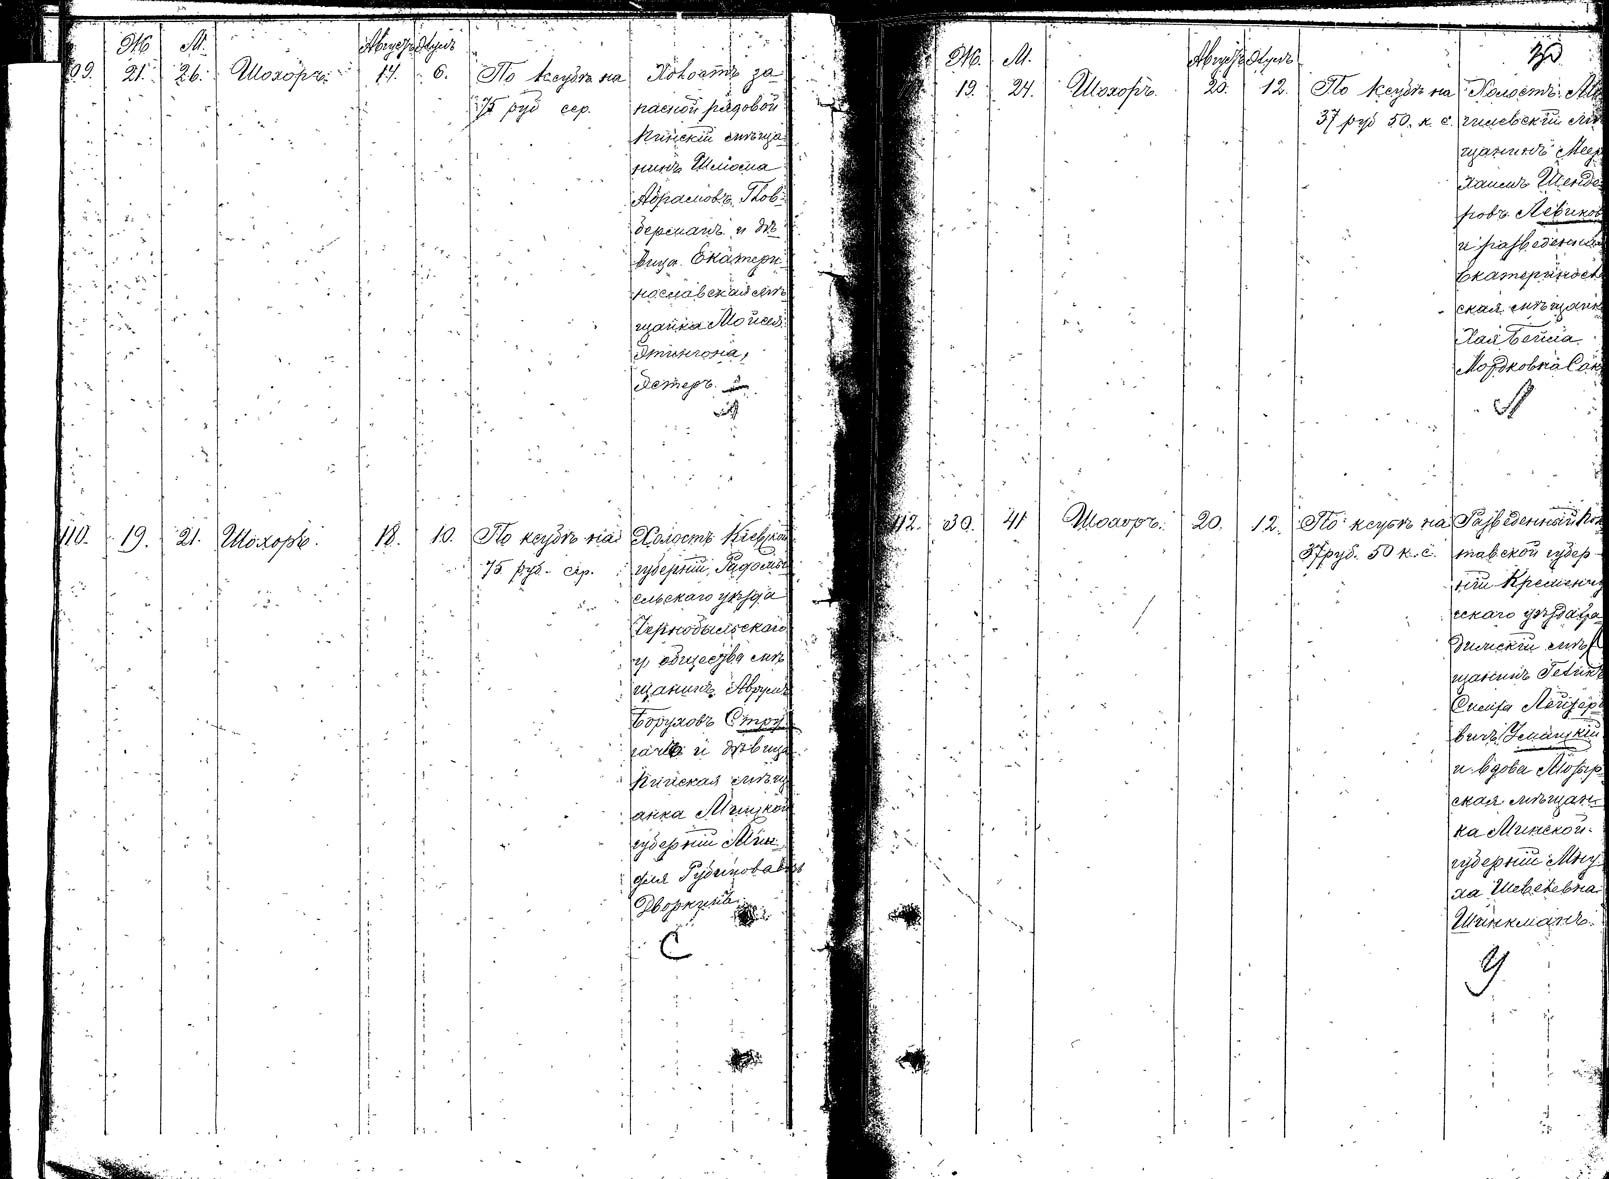 Ж М. Августъ Элулъ
09. 21. 26. Шохоръ. 14. 6. По ксубѣ на
75 руб сер.
Холостъ за
пасной рядовой
Пинскій мѣща
нинъ Шлиома
Абрамовъ
берманъ и дѣ
вица Екатери
нославская мѣ
щанка Мойсея
Этингона,
Эстеръ.
Л
110. 19. 21. Шохоръ. 18. 10. По ксубѣ на
75 руб. сер.
Холостъ Кіевской
губерніи, Радомы
сльскаго уѣзда
Чернобыльскаго
общества мѣ
щанинъ Аврумъ
Боруховъ Стру
гачъ и дѣвица
Пинская мѣщ
анка Минской
губерніи Мин
для Рубиновавна
Дворкинъ
С
30
Ж. М. Августъ Элулъ
19. 24. Шохоръ. 20. 12. По ксубѣ на
37 руб 50. к. с.
Холостъ Мо
гилевскій мѣ
щанинъ Меер
Хаимъ Шенде
ровъ Левиков
и разведенная
Екатериносла
ская мѣщанк
Хая Бейла
Мордковна
Л
112. 30. 41 Шохоръ. 20. 12. По ксубѣ на
37 руб. 50 к. с.
Разведенный Пол
тавской губер-
ніи Кременчу
гскаго уѣзда Гра
дижскій мѣ
щанинъ
Симха Лейзеро
вичъ Уманскій
и вдова Мозыр
ская мѣщан
ка Минской
губерніи Мну
ха Шевелевна
Шинкманъ.
У